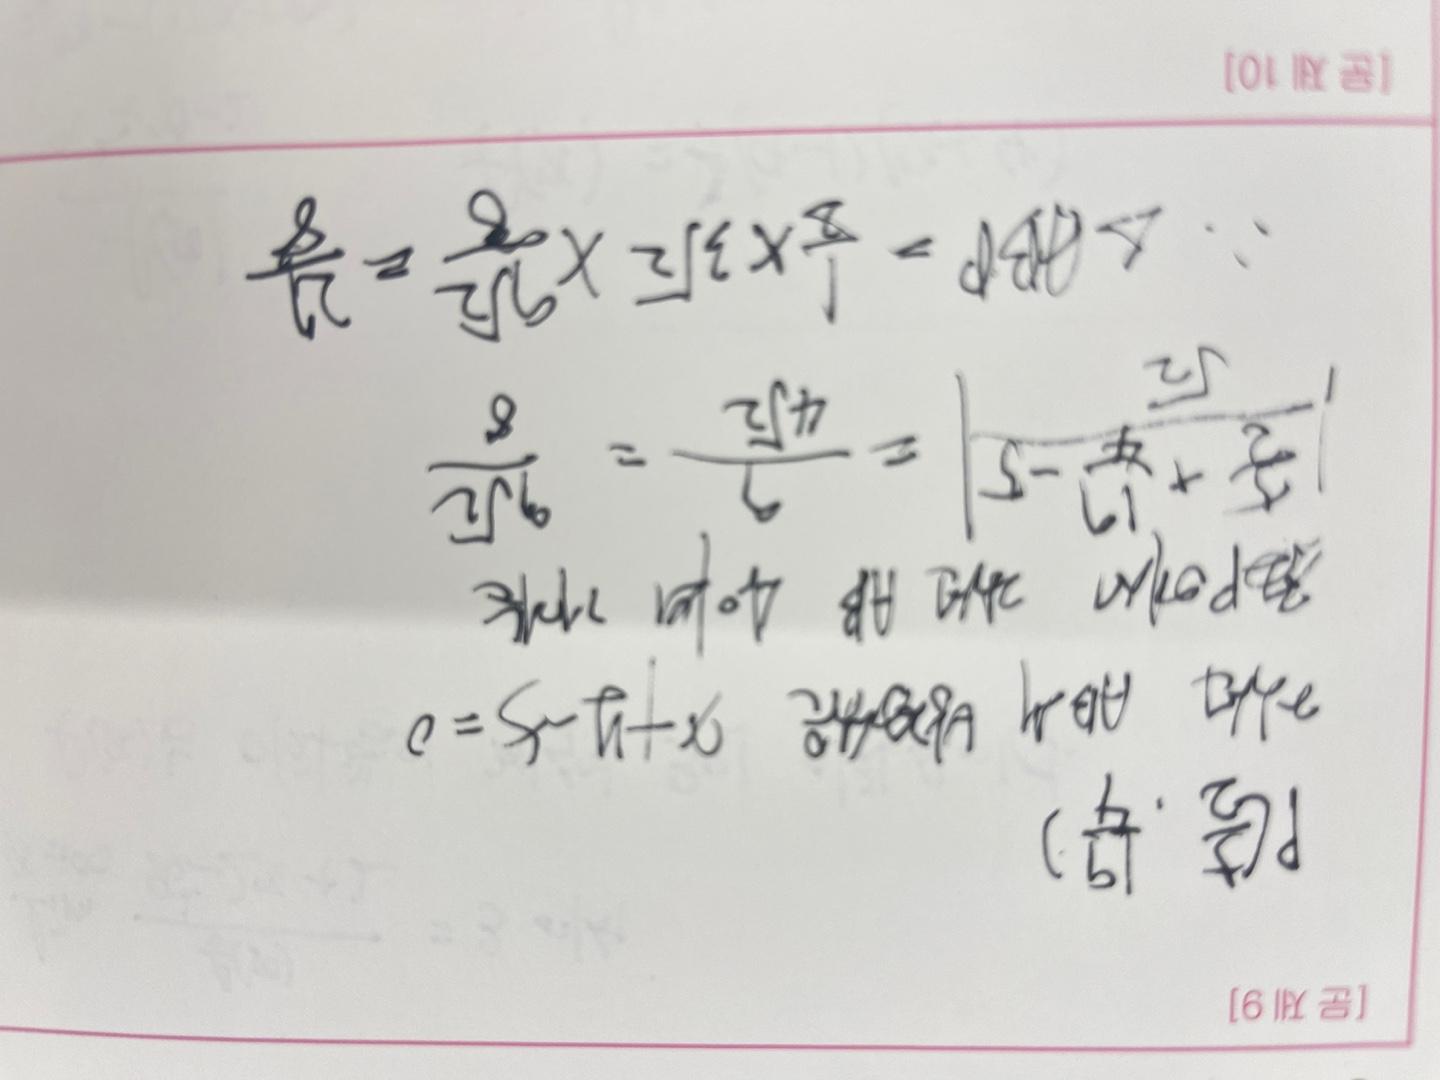 [문제 9]
P(5/2 . 19/4)
직선 AB의 방정식은 x+y-5=0
점P에서 직선 AB 사이의 거리는
|5/2 + 19/4 -5| / √2 = 9/4√2 = 9√2/8
∴ △ABP = 1/2 × 3√2 × 9√2/8 = 27/8
[문제 10]